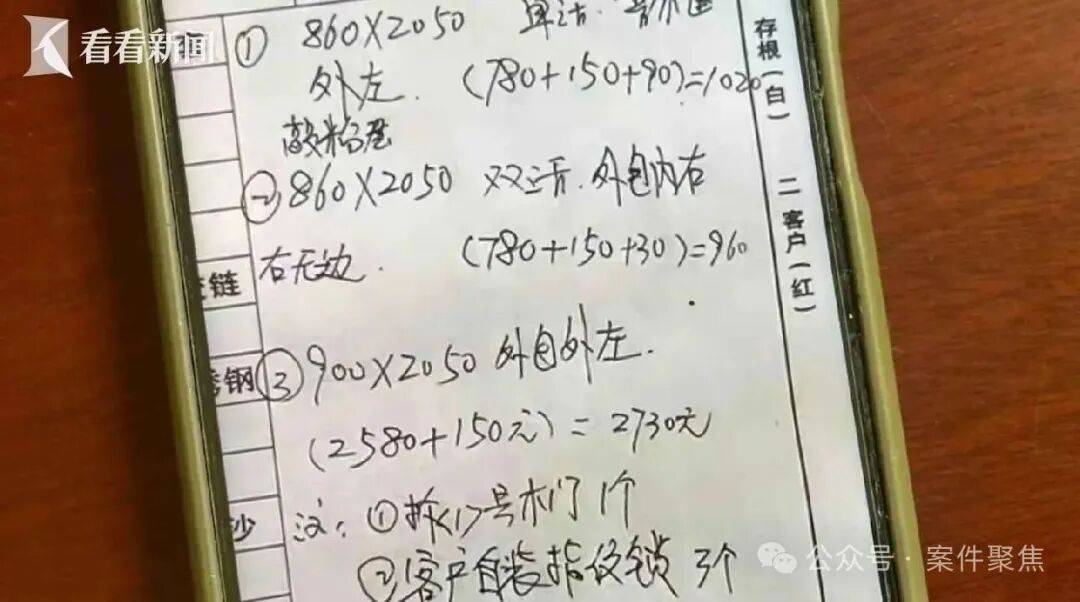 看看新闻
① 860X2050 单活.
外左. (780+150+90)=1020
② 860X2050 双活. 外包内右
右无边. (780+150+30)=960
链
③ 900X2050 外包外左.
钢
(2580+150元) = 2730元
沙
注: ① 拆 号木门 1个
② 客户自装指纹锁 3个
存根(白) 二 客户(红)
公众号 · 案件聚焦